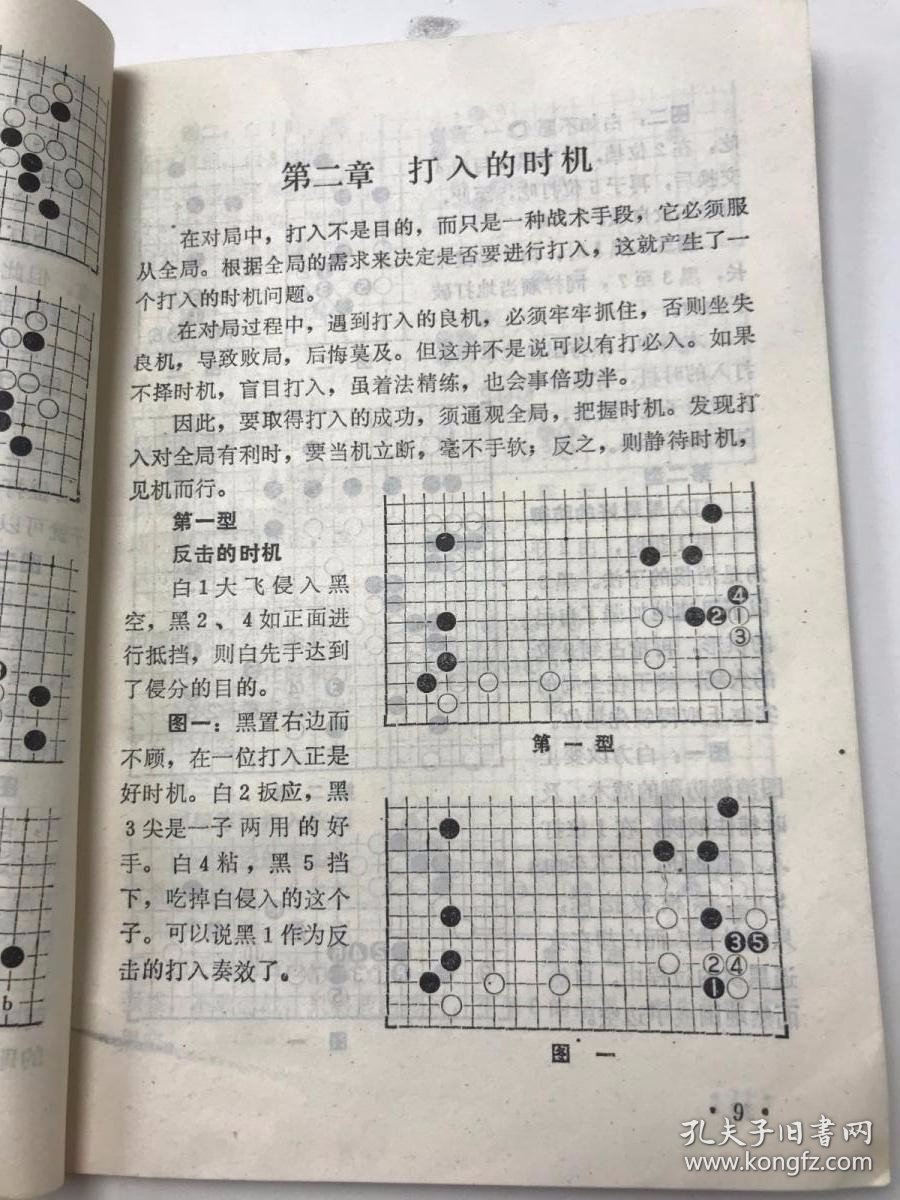 第二章 打入的时机
在对局中，打入不是目的，而只是一种战术手段，它必须服
从全局。根据全局的需求来决定是否要进行打入，这就产生了一
个打入的时机问题。
在对局过程中，遇到打入的良机，必须牢牢抓住，否则坐失
良机，导致败局，后悔莫及。但这并不是说可以有打必入。如果
不择时机，盲目打入，虽着法精练，也会事倍功半。
因此，要取得打入的成功，须通观全局，把握时机。发现打
入对全局有利时，要当机立断，毫不手软；反之，则静待时机，
见机而行。
第一型
反击的时机
白1大飞侵入黑
空，黑2、4如正面进
行抵挡，则白先手达到
了侵分的目的。
图一：黑置右边而
不顾，在一位打入正是
好时机。白2扳应，黑
3尖是一子两用的好
手。白4粘，黑5挡
下，吃掉白侵入的这个
子。可以说黑1作为反
击的打入奏效了。
4
2 1
3
第一型
3 5
2 4
1
图 一
b
·9·
孔夫子旧书网
www.kongfz.com